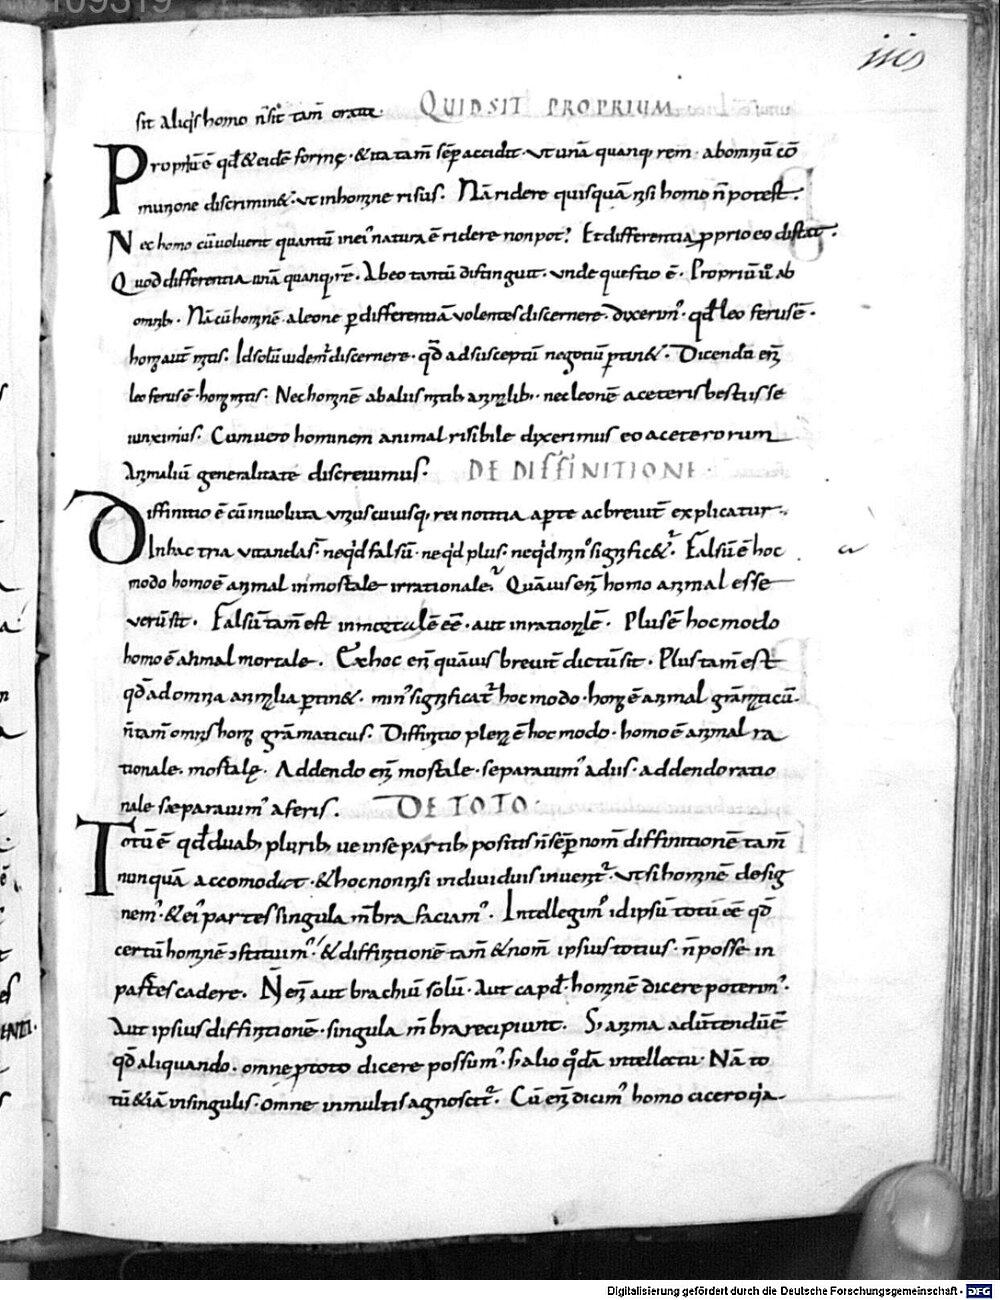 109319
iiij
sit aliq's homo n̄ sit tam̄ orator. QUID SIT PROPRIUM
Propriū ē qd̄ & eidē formę · & ita tam̄ sēp accidit · ut unā quamq; rem · ab omniū cō
munione discrimin& · ut in homine risus. Nā ridere quisquā nisi homo n̄ potest.
Nec homo cū voluerit quantū in ei' natura ē ridere non pot? Et differentia ꝓprio eo distat.
Quod differentia unā quamq; rē · Ab eo tantū distinguit · unde questio ē. Propriū ū ab
omnib;. Nā cū hominē a leone ꝑ differentiā volentes discernere · dixerim' · qd̄ leo ferus ē ·
homo aut̄ mitis. Id solū videm' discernere · qd̄ ad susceptū negotiū ꝑtin&. Dicendū eni
leo ferus ē · homo mitis. Nec hominē ab aliis mitib; animalib; · nec leonē a ceteris bestiis se
iunximus. Cum uero hominem animal risibile dixerimus eo a ceterorum
Animaliū generalitate discreuimus. DE DIFFINITIONE.
Diffinitio ē cū inuoluta unius cuiusq; rei notitia aperte ac breuit̄ explicatur.
In hac tria vitanda s̄ · neq'd falsū · neq'd plus · neq'd min' signific&. Falsū ē hoc
modo homo ē animal inmortale irrationale. Quāuis eni homo animal esse
verū sit. Falsū tam̄ est inmortalē eē · aut inrationalē. Plus ē hoc modo
homo ē animal mortale. Ex hoc eni quāuis breuit̄ dictū sit. Plus tam̄ est
qd̄ ad omnia animalia ꝑtin&. min' significat' hoc modo · homo ē animal grāmaticū.
n̄ tam̄ omnis homo grāmaticus. Diffinitio plena ē hoc modo · homo ē animal ra
tionale · mortale. Addendo eni mortale · separauim' a diis · addendo ratio
nale separauim' a feris. DE TOTO.
Totū ē qd̄ duab; plurib; ue in se partib; positis n̄ sēp nom̄ diffinitionē tam̄
nunquā accomodat · & hoc non nisi in diuiduis inuenit' · ut si hominē desig
nem' · & ei' partes singula m̄bra faciam'. Intellegim' id ipsū totū eē qd̄
certū hominē ɔstituim' · & diffinitionē tam̄ & nom̄ ipsius totius · n̄ posse in
partes cadere. N̄ eni aut brachiū solū · Aut capd̄ · hominē dicere poterim'.
Aut ipsius diffinitionē · singula m̄bra recipiunt. S; anima aduertendū ē
qd̄ aliquando · omne ꝓ toto dicere possum' · s; alio q̊dā intellectu Nā to
tū &iā in singulis · omne in multis agnoscit'. Cū eni dicim' homo cicero q'a
Digitalisierung gefördert durch die Deutsche Forschungsgemeinschaft - DFG